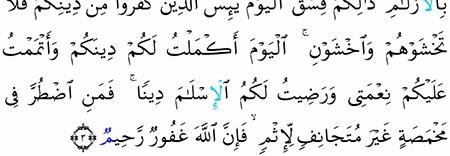 بِٱلۡأَزۡلَٰمِۚ ذَٰلِكُمۡ فِسۡقٌۗ ٱلۡيَوۡمَ يَئِسَ ٱلَّذِينَ كَفَرُواْ مِن دِينِكُمۡ فَلَا
تَخۡشَوۡهُمۡ وَٱخۡشَوۡنِۚ ٱلۡيَوۡمَ أَكۡمَلۡتُ لَكُمۡ دِينَكُمۡ وَأَتۡمَمۡتُ
عَلَيۡكُمۡ نِعۡمَتِي وَرَضِيتُ لَكُمُ ٱلۡإِسۡلَٰمَ دِينٗاۚ فَمَنِ ٱضۡطُرَّ فِي
مَخۡمَصَةٍ غَيۡرَ مُتَجَانِفٖ لِّإِثۡمٖ فَإِنَّ ٱللَّهَ غَفُورٞ رَّحِيمٞ ٣